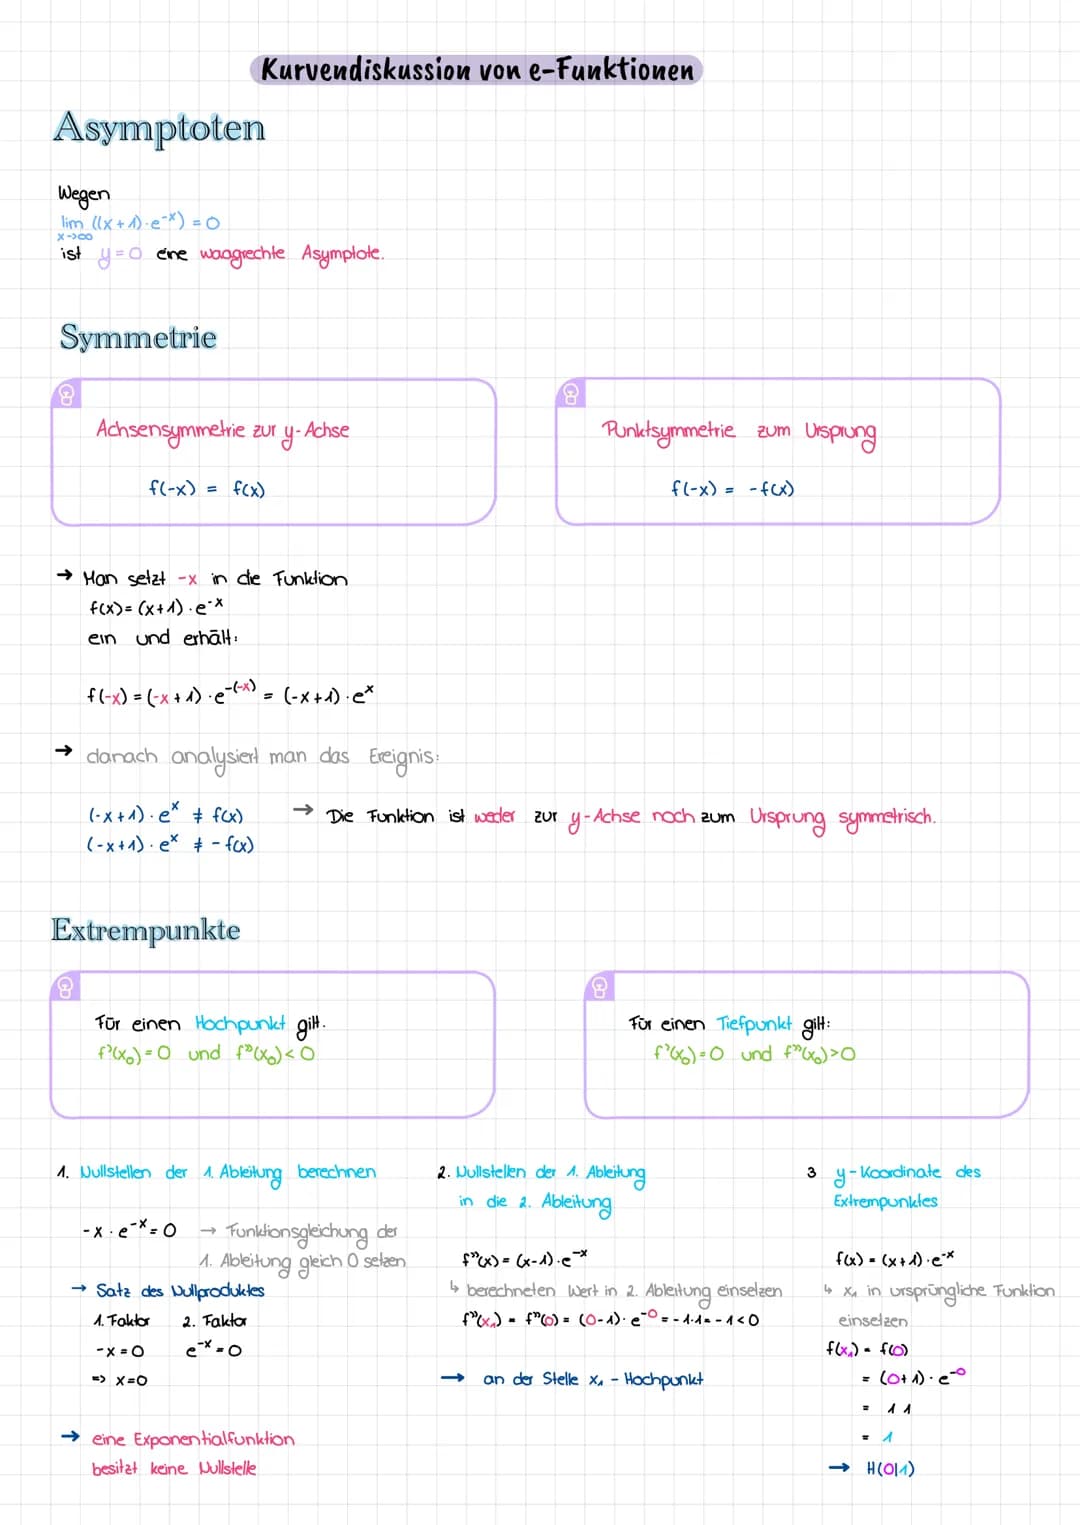 Kurvendiskussion von e-Funktionen
Asymptoten
Wegen
lim ((x+1)·e⁻ˣ) = 0
x→∞
ist y=0 eine waagrechte Asymptote.
Symmetrie
Achsensymmetrie zur y-Achse
f(-x) = f(x)
Punktsymmetrie zum Ursprung
f(-x) = -f(x)
→ Man setzt -x in die Funktion
f(x)= (x+1)·e⁻ˣ
ein und erhält:
f(-x) = (-x+1)·e⁻⁽⁻ˣ⁾ = (-x+1)·eˣ
→ danach analysiert man das Ereignis:
(-x+1)·eˣ ≠ f(x)
(-x+1)·eˣ ≠ -f(x)
→ Die Funktion ist weder zur y-Achse noch zum Ursprung symmetrisch.
Extrempunkte
Für einen Hochpunkt gilt.
f'(x₀)=0 und f''(x₀)<0
Für einen Tiefpunkt gilt:
f'(x₀)=0 und f''(x₀)>0
1. Nullstellen der 1. Ableitung berechnen
-x·e⁻ˣ=0 → Funktionsgleichung der
1. Ableitung gleich 0 setzen
→ Satz des Nullproduktes
1. Faktor 2. Faktor
-x=0 e⁻ˣ=0
=> x=0
→ eine Exponentialfunktion
besitzt keine Nullstelle
2. Nullstellen der 1. Ableitung
in die 2. Ableitung
f''(x) = (x-1)·e⁻ˣ
↳ berechneten Wert in 2. Ableitung einselzen
f''(x₁) = f''(0) = (0-1)·e⁻⁰ = -1·1 = -1<0
→ an der Stelle x₁ - Hochpunkt
3 y-Koordinate des
Extrempunktes
f(x) = (x+1)·e⁻ˣ
↳ x₁ in ursprüngliche Funktion
einsetzen
f(x₁) = f(0)
= (0+1)·e⁻⁰
= 1 1
= 1
→ H(0|1)